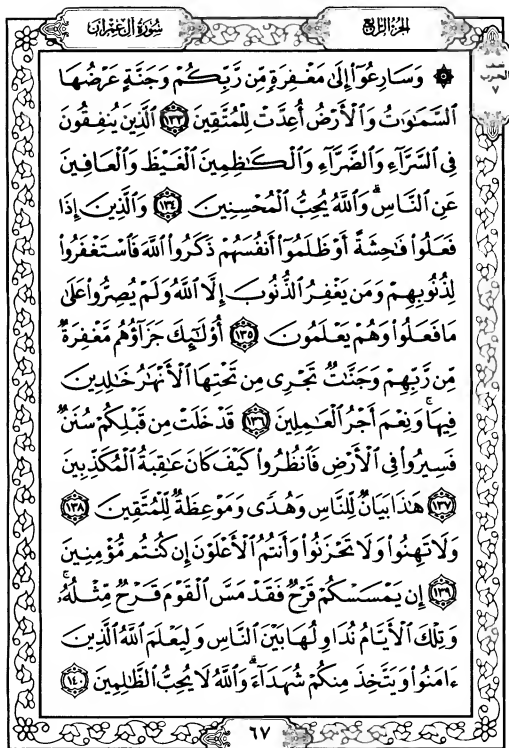 سُورَةُ آلِ عِمْرَان
الجُزْءُ الرَّابِع
۞ وَسَارِعُوٓا۟ إِلَىٰ مَغْفِرَةٍ مِّن رَّبِّكُمْ وَجَنَّةٍ عَرْضُهَا
ٱلسَّمَٰوَٰتُ وَٱلْأَرْضُ أُعِدَّتْ لِلْمُتَّقِينَ ١٣٣ ٱلَّذِينَ يُنفِقُونَ
فِى ٱلسَّرَّآءِ وَٱلضَّرَّآءِ وَٱلْكَٰظِمِينَ ٱلْغَيْظَ وَٱلْعَافِينَ
عَنِ ٱلنَّاسِ ۗ وَٱللَّهُ يُحِبُّ ٱلْمُحْسِنِينَ ١٣٤ وَٱلَّذِينَ إِذَا
فَعَلُوا۟ فَٰحِشَةً أَوْ ظَلَمُوٓا۟ أَنفُسَهُمْ ذَكَرُوا۟ ٱللَّهَ فَٱسْتَغْفَرُوا۟
لِذُنُوبِهِمْ وَمَن يَغْفِرُ ٱلذُّنُوبَ إِلَّا ٱللَّهُ وَلَمْ يُصِرُّوا۟ عَلَىٰ
مَا فَعَلُوا۟ وَهُمْ يَعْلَمُونَ ١٣٥ أُو۟لَٰٓئِكَ جَزَآؤُهُم مَّغْفِرَةٌ
مِّن رَّبِّهِمْ وَجَنَّٰتٌ تَجْرِى مِن تَحْتِهَا ٱلْأَنْهَٰرُ خَٰلِدِينَ
فِيهَا ۚ وَنِعْمَ أَجْرُ ٱلْعَٰمِلِينَ ١٣٦ قَدْ خَلَتْ مِن قَبْلِكُمْ سُنَنٌ
فَسِيرُوا۟ فِى ٱلْأَرْضِ فَٱنظُرُوا۟ كَيْفَ كَانَ عَٰقِبَةُ ٱلْمُكَذِّبِينَ
١٣٧ هَٰذَا بَيَانٌ لِّلنَّاسِ وَهُدًى وَمَوْعِظَةٌ لِّلْمُتَّقِينَ ١٣٨
وَلَا تَهِنُوا۟ وَلَا تَحْزَنُوا۟ وَأَنتُمُ ٱلْأَعْلَوْنَ إِن كُنتُم مُّؤْمِنِينَ
١٣٩ إِن يَمْسَسْكُمْ قَرْحٌ فَقَدْ مَسَّ ٱلْقَوْمَ قَرْحٌ مِّثْلُهُۥ ۚ
وَتِلْكَ ٱلْأَيَّامُ نُدَاوِلُهَا بَيْنَ ٱلنَّاسِ وَلِيَعْلَمَ ٱللَّهُ ٱلَّذِينَ
ءَامَنُوا۟ وَيَتَّخِذَ مِنكُمْ شُهَدَآءَ ۗ وَٱللَّهُ لَا يُحِبُّ ٱلظَّٰلِمِينَ ١٤٠
٦٧
الحزب
٧